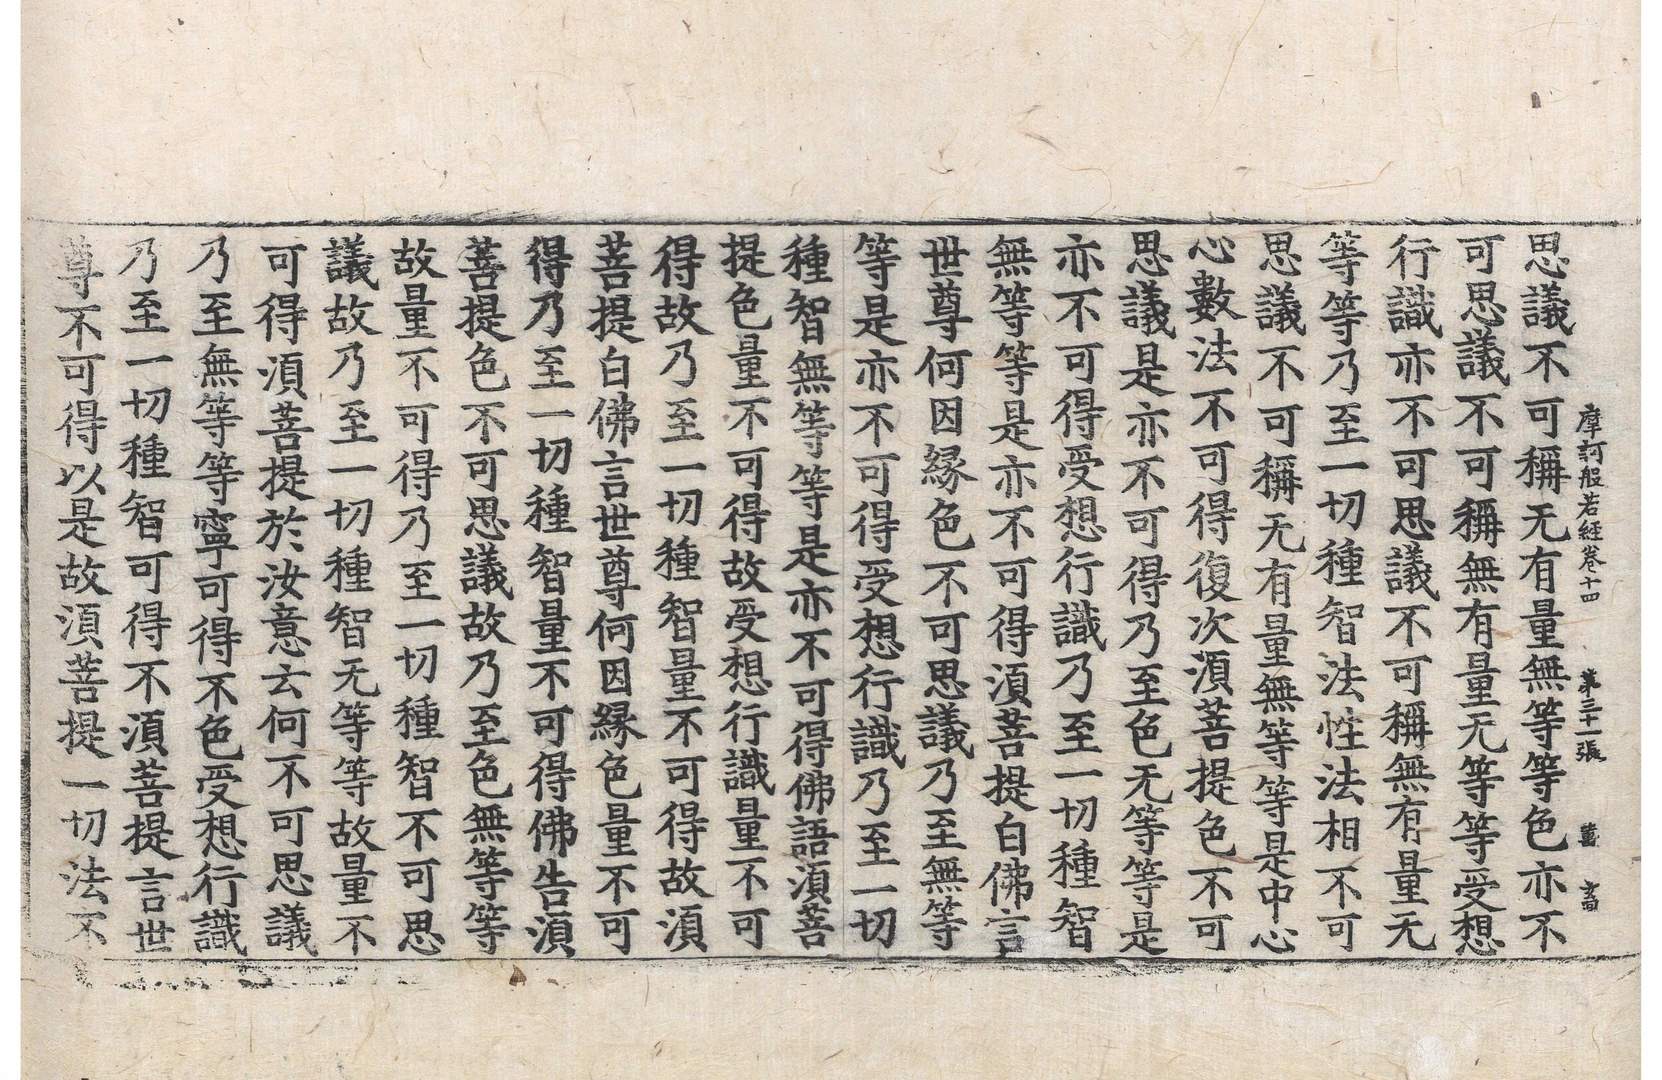 摩訶般若經卷十四 第三十一張
思議不可稱无有量無等等色亦不
可思議不可稱無有量无等等受想
行識亦不可思議不可稱無有量无
等等乃至一切種智法性法相不可
思議不可稱无有量無等等是中心
心數法不可得復次湏菩提色不可
思議是亦不可得乃至色无等等是
亦不可得受想行識乃至一切種智
無等等是亦不可得湏菩提白佛言
世尊何因縁色不可思議乃至無等
等是亦不可得受想行識乃至一切
種智無等等是亦不可得佛語湏菩
提色量不可得故受想行識量不可
得故乃至一切種智量不可得故湏
菩提白佛言世尊何因縁色量不可
得乃至一切種智量不可得佛告湏
菩提色不可思議故乃至色無等等
故量不可得乃至一切種智不可思
議故乃至一切種智无等等故量不
可得湏菩提於汝意云何不可思議
乃至無等等寧可得不色受想行識
乃至一切種智可得不湏菩提言世
尊不可得以是故湏菩提一切法不